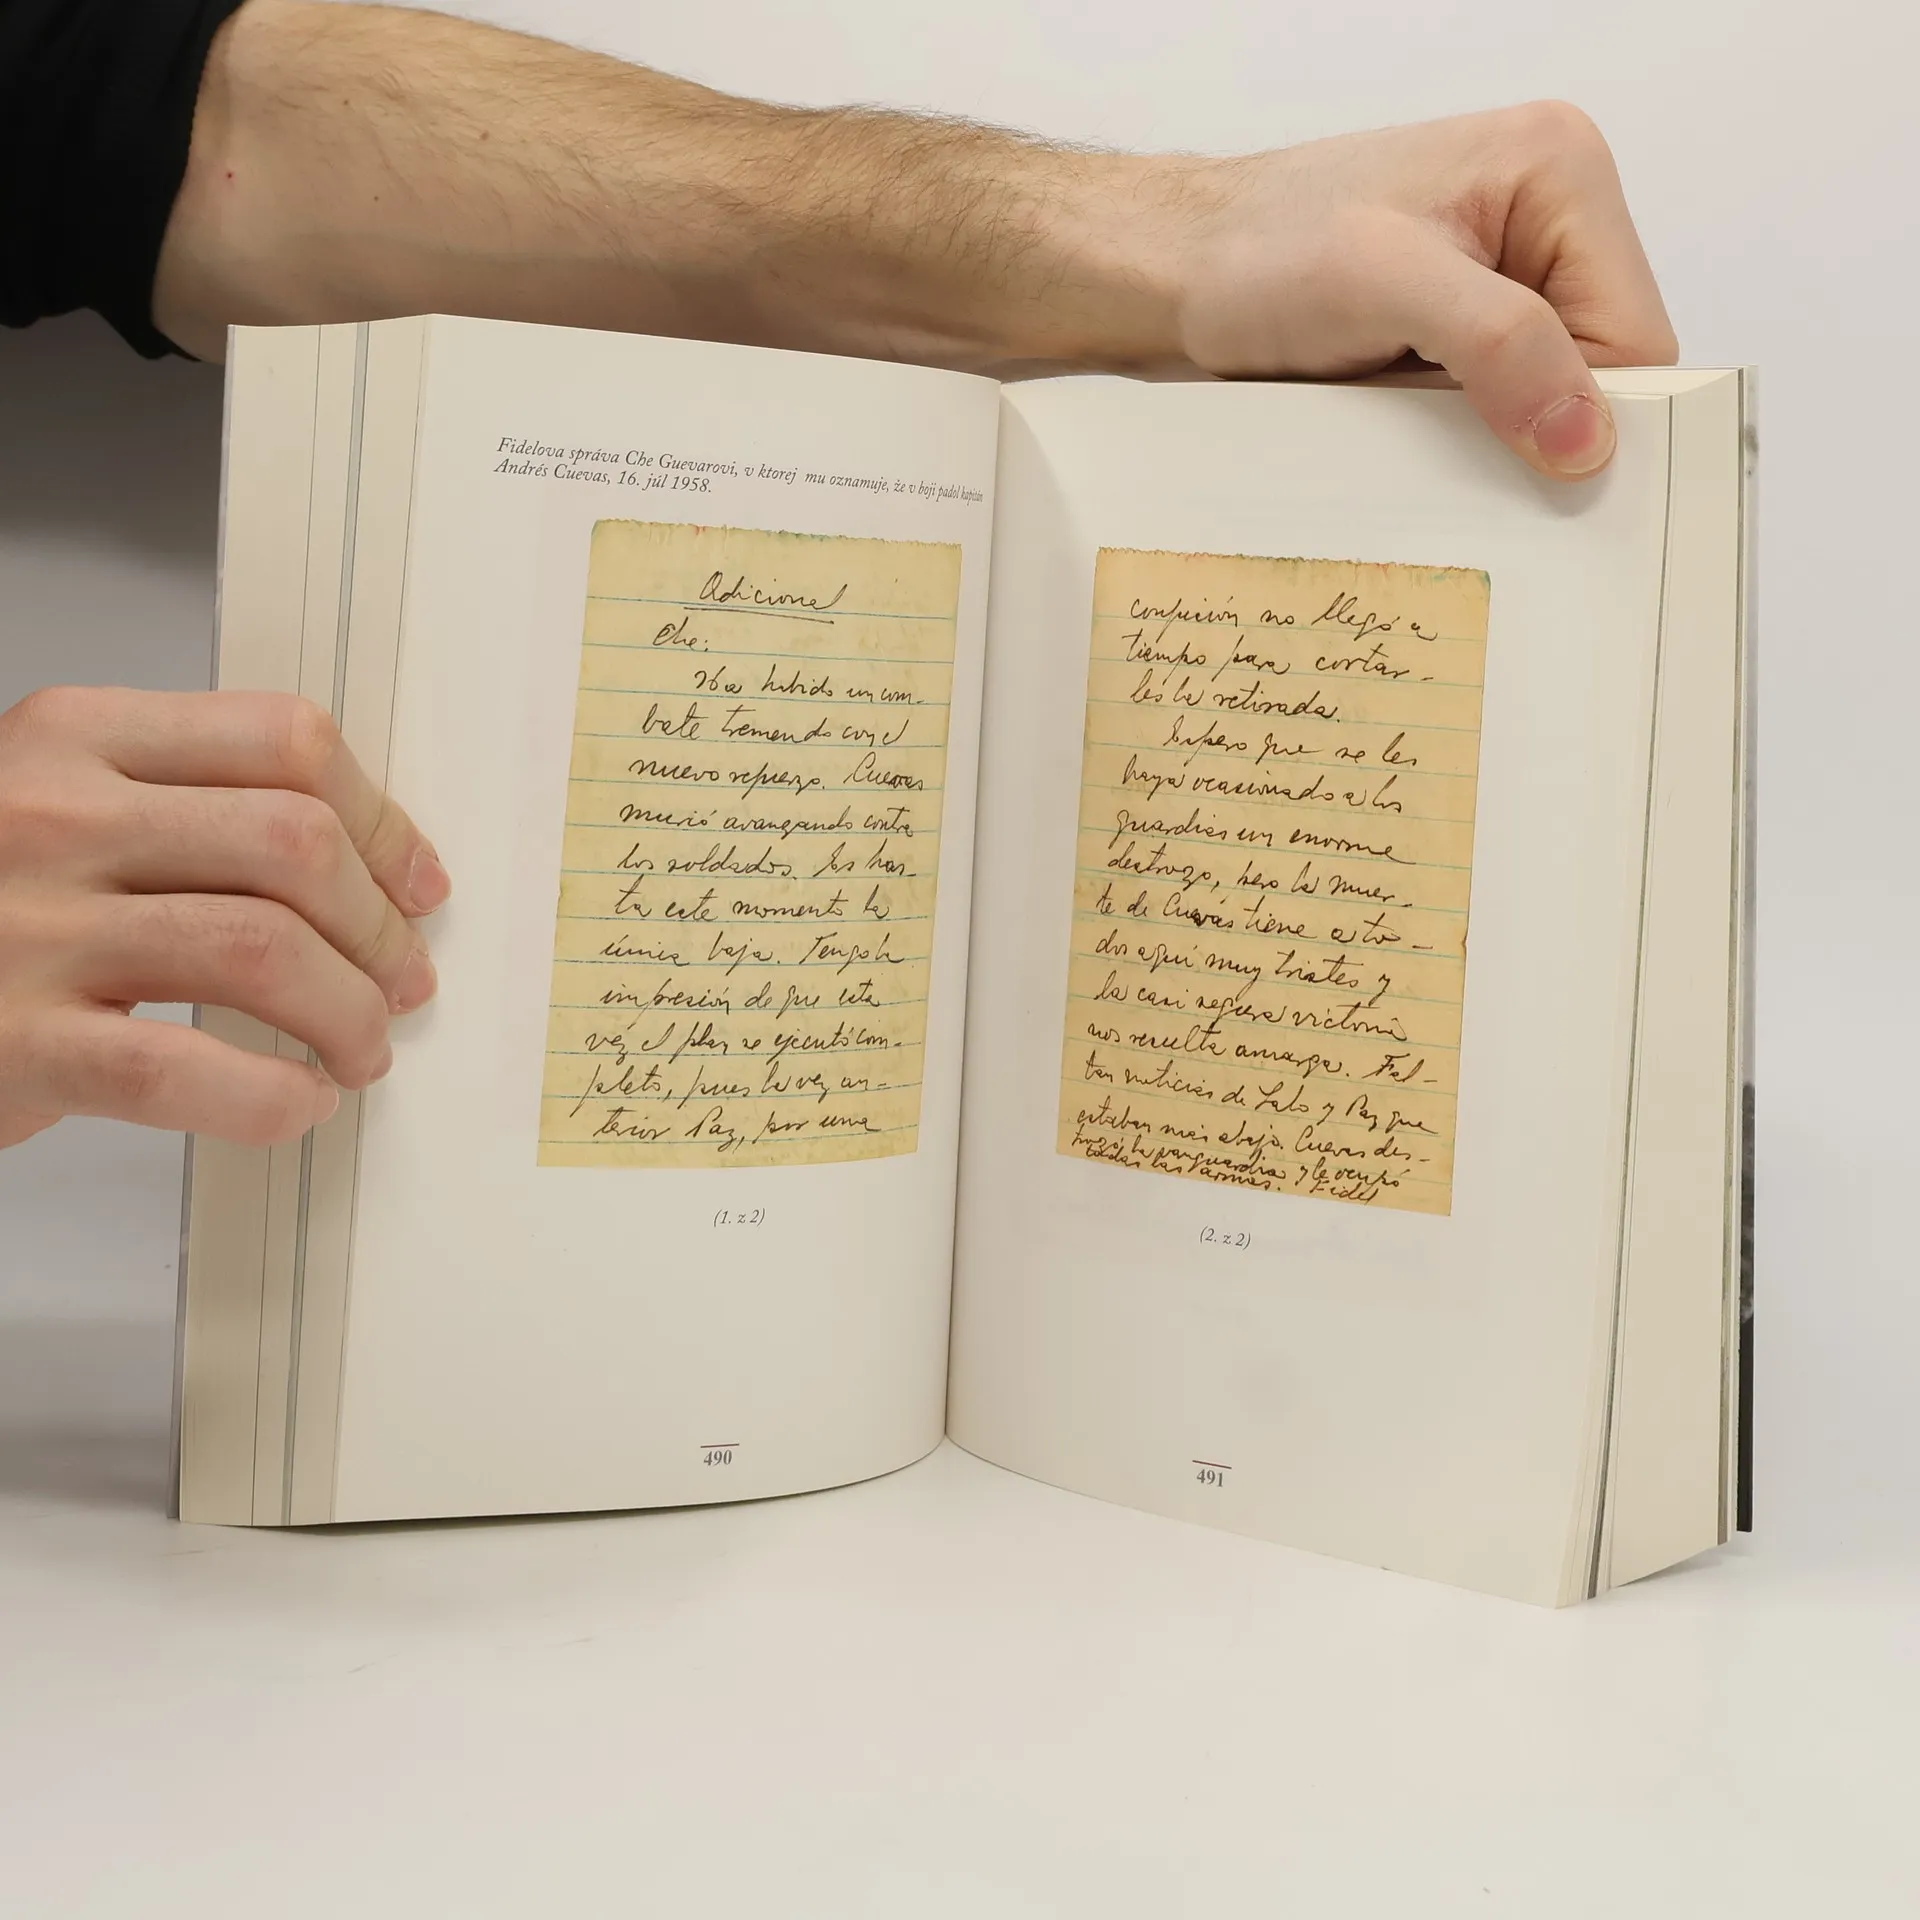 Fidelova správa Che Guevarovi, v ktorej mu oznamuje, že v boji padol kapitán
Andrés Cuevas, 16. júl 1958.
Adicional
Che:
Ha habido un com-
bate tremendo con el
nuevo refuerzo. Cuevas
murió avanzando contra
los soldados. Es has-
ta este momento la
única baja. Tengo la
impresión de que esta
vez el plan se ejecutó com-
pleto, pues la vez an-
terior Paz, por una
(1. z 2)
490
confusión no llegó a
tiempo para cortar-
les la retirada.
Espero que se les
haya ocasionado a los
guardias un enorme
destrozo, pero la muer-
te de Cuevas tiene a to-
dos aquí muy tristes y
la casi segura victoria
nos resulta amarga. Fal-
tan noticias de Lalo y Paz que
estaban más abajo. Cuevas des-
trozó la vanguardia y le ocupó
todas las armas. Fidel
(2. z 2)
491